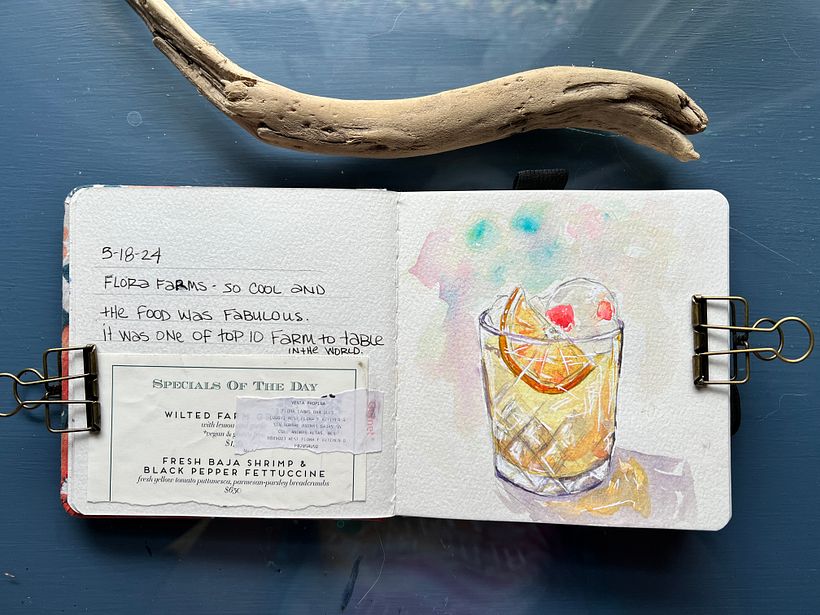 5-18-24
FLORA FARMS - SO COOL AND
tHE FOOD WAS FABULOUS.
it WAS ONE OF tOP 10 FARM to tABLE
IN tHE WORLD.
SPECIALS OF THE DAY
WILTED FARM
with lemon
*vegan &
FRESH BAJA SHRIMP &
BLACK PEPPER FETTUCCINE
fresh yellow tomato puttanesca, parmesan-parsley breadcrumbs
$650
VENTA PROPINA